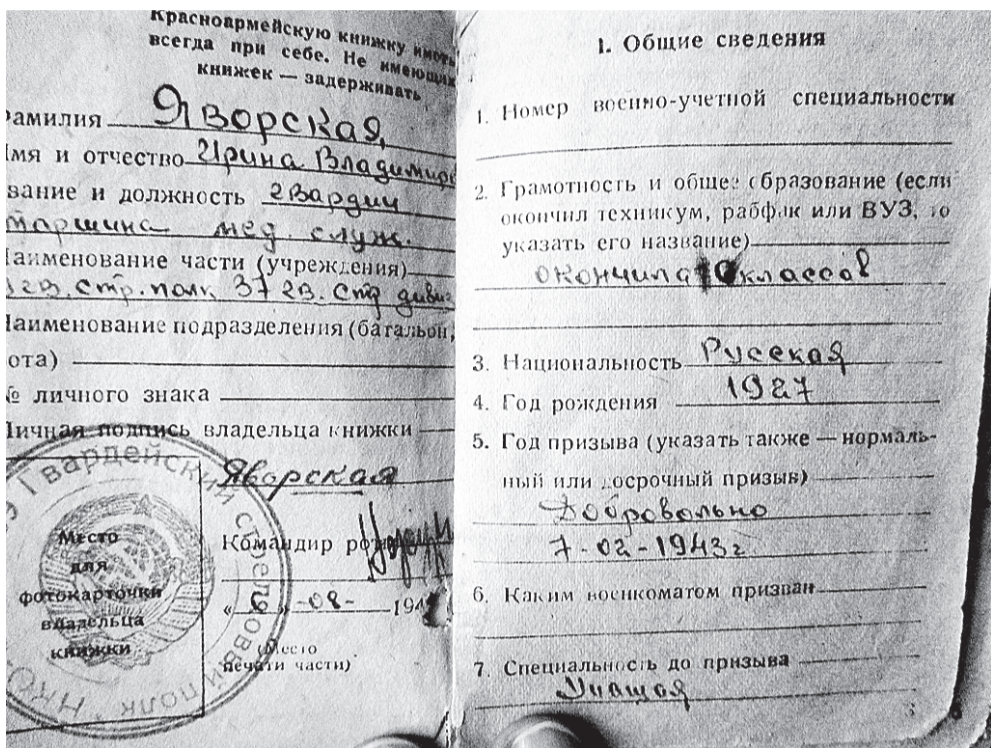 Красноармейскую книжку иметь
всегда при себе. Не имеющих
книжек — задерживать
Фамилия Яворская
Имя и отчество Ирина Владимиро
звание и должность гвардии
старшина мед. служ.
Наименование части (учреждения)
гв. стр. полк 37 гв. стр дивиз
Наименование подразделения (батальон,
рота)
№ личного знака
Личная подпись владельца книжки
Яворская
Командир роты
«6» -08- 194
(Место
печати части)
Место
для
фотокарточки
владельца
книжки
Гвардейский стрелковый полк НКО
1. Общие сведения
1. Номер военно-учетной специальности
2. Грамотность и общее образование (если
окончил техникум, рабфак или ВУЗ, то
указать его название)
окончила 10 классов
3. Национальность Русская
4. Год рождения 1927
5. Год призыва (указать также — нормаль-
ный или досрочный призыв)
Добровольно
7-02-1943г
6. Каким военкоматом призван
7. Специальность до призыва
Учащая